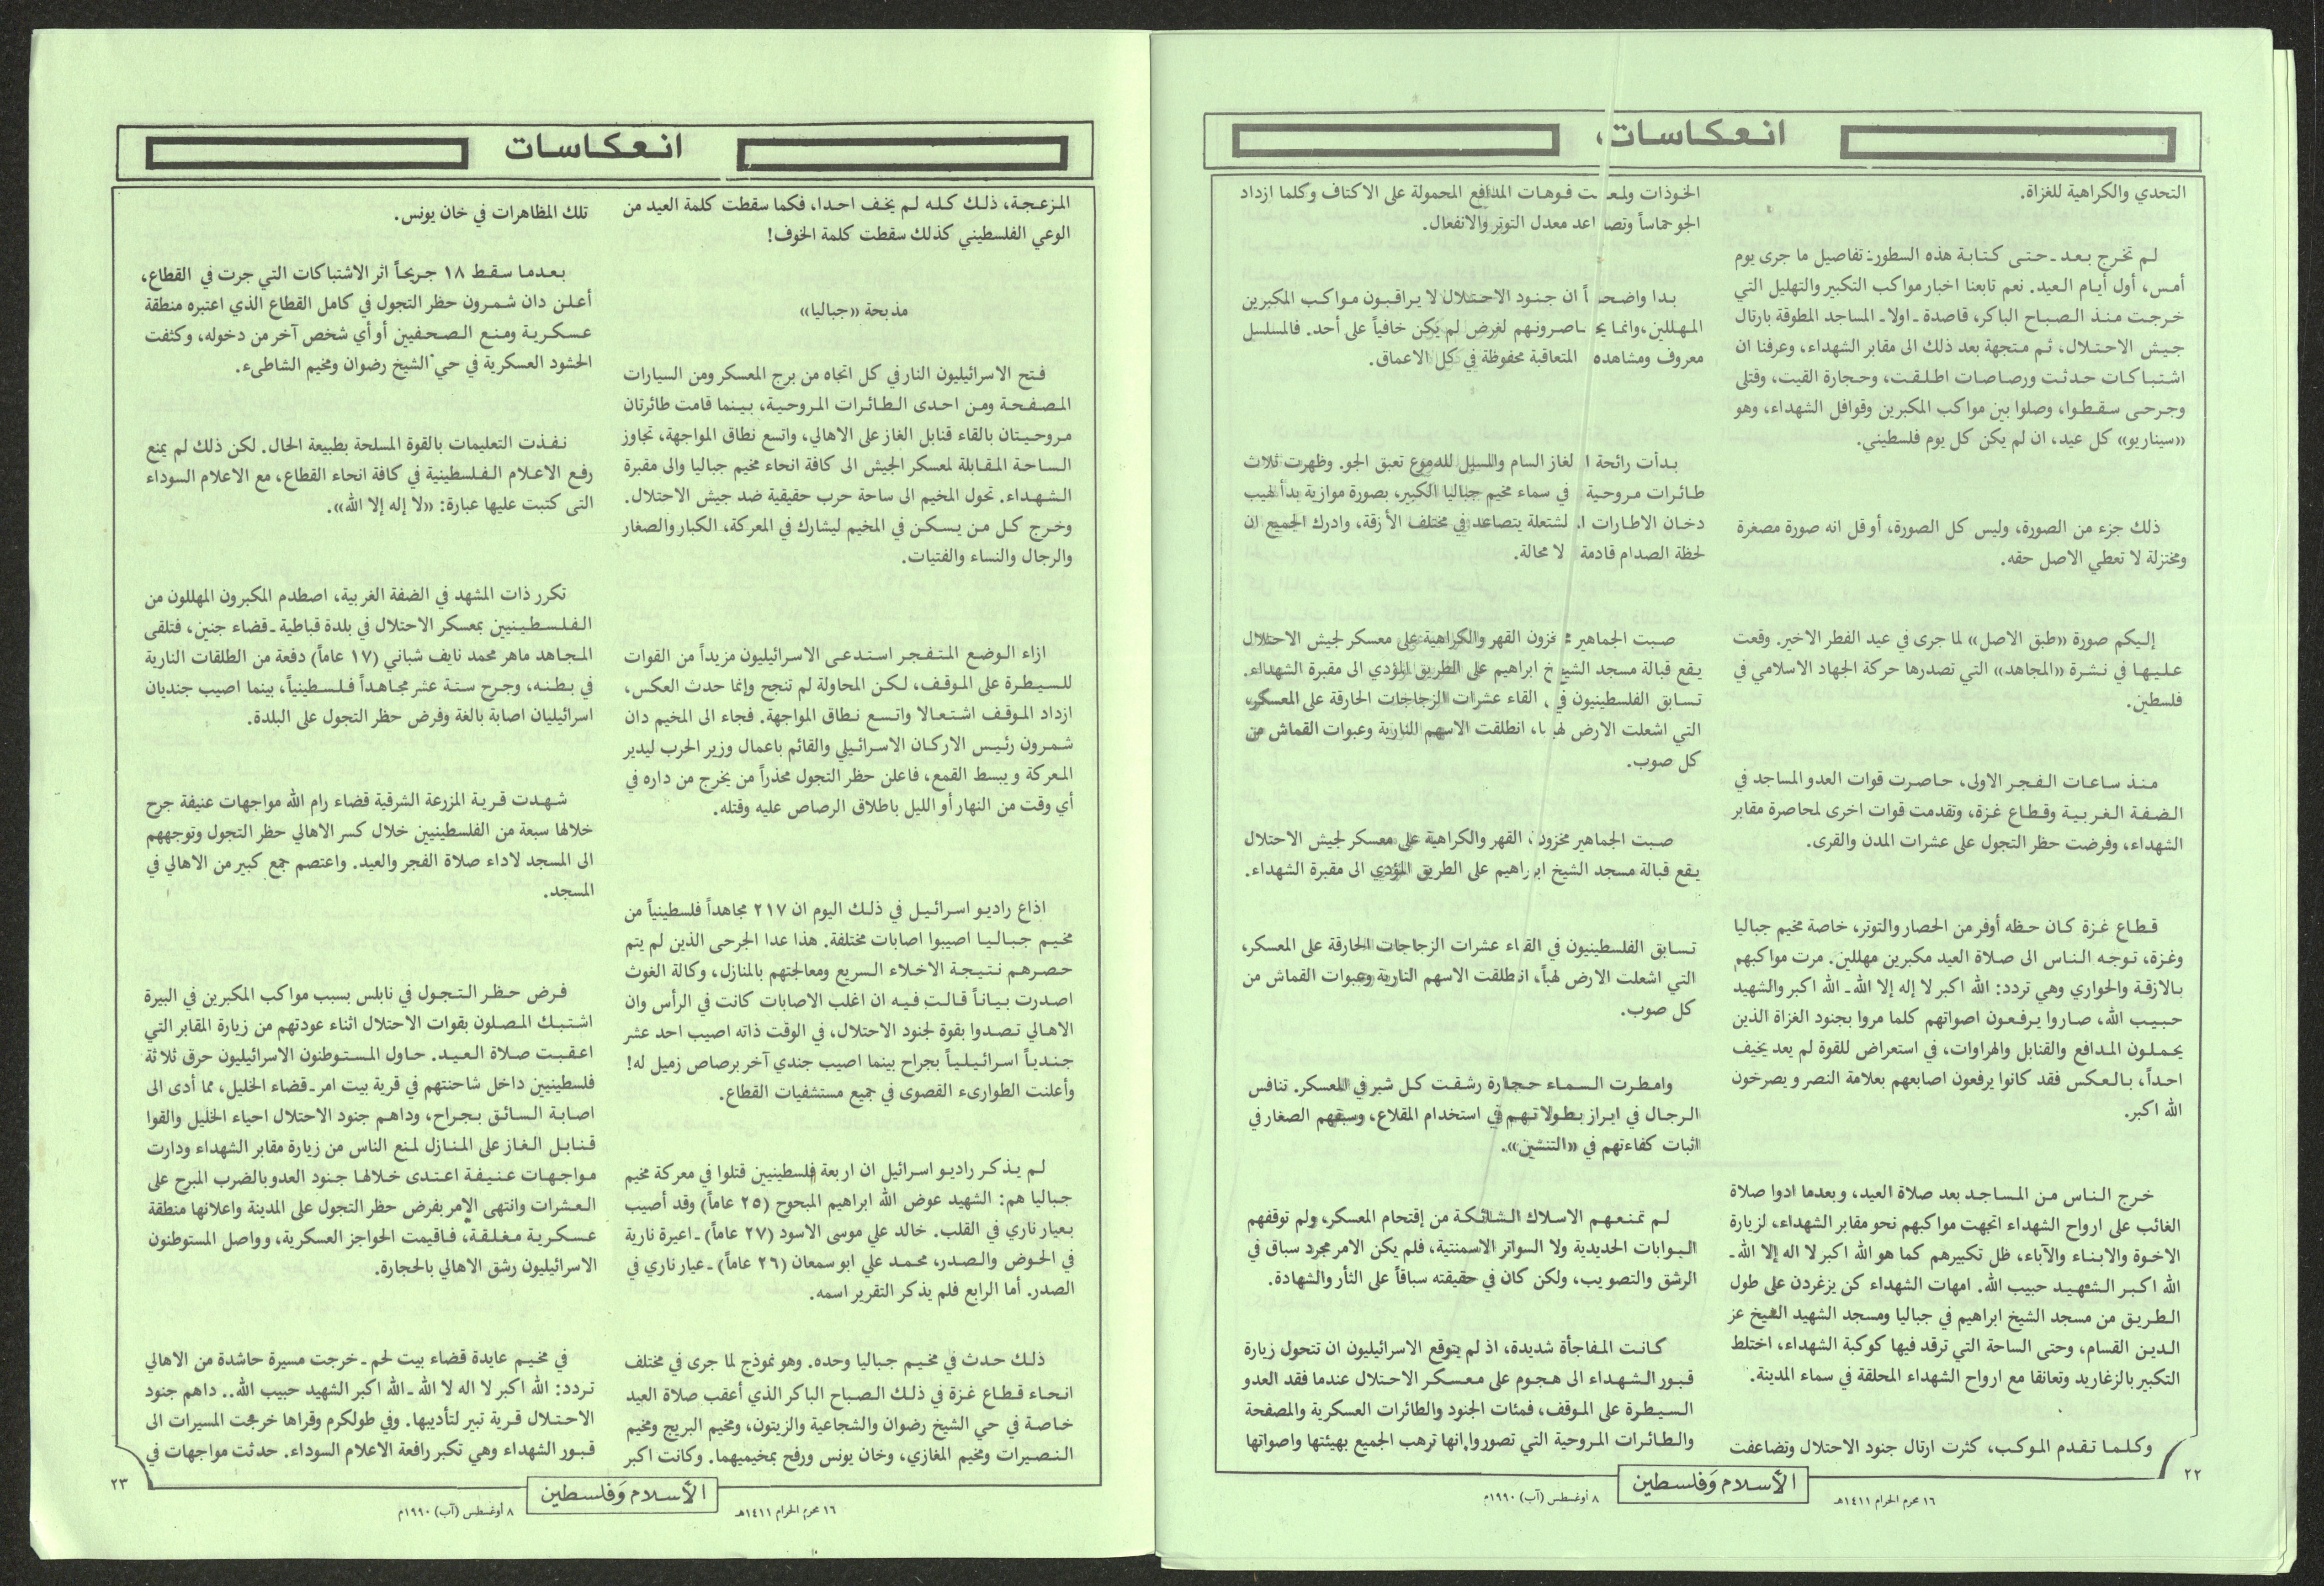 انعكاسات
التحدي والكراهية للغزاة.
لم تخرج بعد ـ حتى كتابة هذه السطور ـ تفاصيل ما جرى يوم
أمس، أول أيام العيد. نعم تابعنا اخبار مواكب التكبير والتهليل التي
خرجت منذ الصباح الباكر، قاصدة ـ اولا ـ المساجد المطوقة بارتال
جيش الاحتلال، ثم متجهة بعد ذلك الى مقابر الشهداء، وعرفنا ان
اشتباكات حدثت ورصاصات اطلقت، وحجارة القيت، وقتلى
وجرحى سقطوا، وصلوا بين مواكب المكبرين وقوافل الشهداء، وهو
«سيناريو» كل عيد، ان لم يكن كل يوم فلسطيني.
ذلك جزء من الصورة، وليس كل الصورة، أو قل انه صورة مصغرة
ومختزلة لا تعطي الاصل حقه.
إليكم صورة «طبق الاصل» لما جرى في عيد الفطر الاخير. وقعت
عليها في نشرة «المجاهد» التي تصدرها حركة الجهاد الاسلامي في
فلسطين.
منذ ساعات الفجر الاولى، حاصرت قوات العدو المساجد في
الضفة الغربية وقطاع غزة، وتقدمت قوات اخرى لمحاصرة مقابر
الشهداء، وفرضت حظر التجول على عشرات المدن والقرى.
قطاع غزة كان حظه أوفر من الحصار والتوتر، خاصة مخيم جباليا
وغزة، توجه الناس الى صلاة العيد مكبرين مهللين. مرت مواكبهم
بالازقة والحواري وهي تردد: الله اكبر لا إله إلا الله ـ الله اكبر والشهيد
حبيب الله، صاروا يرفعون اصواتهم كلما مروا بجنود الغزاة الذين
يحملون المدافع والقنابل والهراوات، في استعراض للقوة لم بعد يخيف
احداً، بالعكس فقد كانوا يرفعون اصابعهم بعلامة النصر ويصرخون
الله اكبر.
خرج الناس من المساجد بعد صلاة العيد، وبعدما ادوا صلاة
الغائب على ارواح الشهداء اتجهت مواكبهم نحو مقابر الشهداء، لزيارة
الاخوة والابناء والآباء، ظل تكبيرهم كما هو الله اكبر لا اله إلا الله ـ
الله اكبر الشهيد حبيب الله. امهات الشهداء كن يزغردن على طول
الطريق من مسجد الشيخ ابراهيم في جباليا ومسجد الشهيد الشيخ عز
الدين القسام، وحتى الساحة التي ترقد فيها كوكبة الشهداء، اختلط
التكبير بالزغاريد وتعانقا مع ارواح الشهداء المحلقة في سماء المدينة.
وكلما تقدم الموكب، كثرت ارتال جنود الاحتلال وتضاعفت
الخوذات ولمعت فوهات المدافع المحمولة على الاكتاف وكلما ازداد
الجو حماساً وتصاعد معدل التوتر والانفعال.
بدا واضحاً ان جنود الاحتلال لا يراقبون مواكب المكبرين
المهللين، وانما يحاصرونهم لغرض لم يكن خافياً على أحد. فالمسلسل
معروف ومشاهده المتعاقبة محفوظة في كل الاعماق.
بدأت رائحة الغاز السام والمسيل للدموع تعبق الجو. وظهرت ثلاث
طائرات مروحية في سماء مخيم جباليا الكبير، بصورة موازية بدأ لهيب
دخان الاطارات المشتعلة يتصاعد في مختلف الأزقة، وادرك الجميع ان
لحظة الصدام قادمة لا محالة.
صبت الجماهير مخزون القهر والكراهية على معسكر لجيش الاحتلال
يقع قبالة مسجد الشيخ ابراهيم على الطريق المؤدي الى مقبرة الشهداء.
تسابق الفلسطينيون في القاء عشرات الزجاجات الحارقة على المعسكر،
التي اشعلت الارض لهبا، انطلقت الاسهم النارية وعبوات القماش من
كل صوب.
صبت الجماهير مخزون القهر والكراهية على معسكر لجيش الاحتلال
يقع قبالة مسجد الشيخ ابراهيم على الطريق المؤدي الى مقبرة الشهداء.
تسابق الفلسطينيون في القاء عشرات الزجاجات الحارقة على المعسكر،
التي اشعلت الارض لهباً، انطلقت الاسهم النارية وعبوات القماش من
كل صوب.
وامطرت السماء حجارة رشقت كل شبر في المعسكر. تنافس
الرجال في ابراز بطولاتهم في استخدام المقلاع، وسبقهم الصغار في
اثبات كفاءتهم في «التنشين».
لم تمنعهم الاسلاك الشائكة من إقتحام المعسكر، ولم توقفهم
البوابات الحديدية ولا السواتر الاسمنتية، فلم يكن الامر مجرد سباق في
الرشق والتصويب، ولكن كان في حقيقته سباقاً على الثأر والشهادة.
كانت المفاجأة شديدة، اذ لم يتوقع الاسرائيليون ان تتحول زيارة
قبور الشهداء الى هجوم على معسكر الاحتلال عندما فقد العدو
السيطرة على الموقف، فمئات الجنود والطائرات العسكرية والمصفحة
والطائرات المروحية التي تصوروا انها ترهب الجميع بهيئتها واصواتها
٢٢
١٦ محرم الحرام ١٤١١هـ
الأسلام وَفلسطين
٨ أوغسطس (آب) ١٩٩٠م
انعكاسات
المزعجة، ذلك كله لم يخف احدا، فكما سقطت كلمة العيد من
الوعي الفلسطيني كذلك سقطت كلمة الخوف!
مذبحة «جباليا»
فتح الاسرائيليون النار في كل اتجاه من برج المعسكر ومن السيارات
المصفحة ومن احدى الطائرات المروحية، بينما قامت طائرتان
مروحيتان بالقاء قنابل الغاز على الاهالي، واتسع نطاق المواجهة، تجاوز
الساحة المقابلة لمعسكر الجيش الى كافة انحاء مخيم جباليا والى مقبرة
الشهداء. تحول المخيم الى ساحة حرب حقيقية ضد جيش الاحتلال.
وخرج كل من يسكن في المخيم ليشارك في المعركة، الكبار والصغار
والرجال والنساء والفتيات.
ازاء الوضع المتفجر استدعى الاسرائيليون مزيداً من القوات
للسيطرة على الموقف، لكن المحاولة لم تنجح وإنما حدث العكس،
ازداد الموقف اشتعالا واتسع نطاق المواجهة. فجاء الى المخيم دان
شمرون رئيس الاركان الاسرائيلي والقائم باعمال وزير الحرب ليدير
المعركة ويبسط القمع، فاعلن حظر التجول محذراً من يخرج من داره في
أي وقت من النهار أو الليل باطلاق الرصاص عليه وقتله.
اذاع راديو اسرائيل في ذلك اليوم ان ٢١٧ مجاهداً فلسطينياً من
مخيم جباليا اصيبوا اصابات مختلفة. هذا عدا الجرحى الذين لم يتم
حصرهم نتيجة الاخلاء السريع ومعالجتهم بالمنازل، وكالة الغوث
اصدرت بياناً قالت فيه ان اغلب الاصابات كانت في الرأس وان
الاهالي تصدوا بقوة لجنود الاحتلال، في الوقت ذاته اصيب احد عشر
جندياً اسرائيلياً بجراح بينما اصيب جندي آخر برصاص زميل له!
وأعلنت الطوارىء القصوى في جميع مستشفيات القطاع.
لم يذكر راديو اسرائيل ان اربعة فلسطينيين قتلوا في معركة مخيم
جباليا هم: الشهيد عوض الله ابراهيم المبحوح (٢٥ عاماً) وقد أصيب
بعيار ناري في القلب. خالد علي موسى الاسود (٢٧ عاماً) ـ اعيرة نارية
في الحوض والصدر، محمد علي ابو سمعان (٢٦ عاماً) ـ عيار ناري في
الصدر. أما الرابع فلم يذكر التقرير اسمه.
ذلك حدث في مخيم جباليا وحده. وهو نموذج لما جرى في مختلف
انحاء قطاع غزة في ذلك الصباح الباكر الذي أعقب صلاة العيد
خاصة في حي الشيخ رضوان والشجاعية والزيتون، ومخيم البريج ومخيم
النصيرات ومخيم المغازي، وخان يونس ورفح بمخيميهما. وكانت اكبر
تلك المظاهرات في خان يونس.
بعدما سقط ١٨ جريحاً اثر الاشتباكات التي جرت في القطاع،
أعلن دان شمرون حظر التجول في كامل القطاع الذي اعتبره منطقة
عسكرية ومنع الصحفيين أو أي شخص آخر من دخوله، وكثفت
الحشود العسكرية في حي الشيخ رضوان ومخيم الشاطىء.
نفذت التعليمات بالقوة المسلحة بطبيعة الحال. لكن ذلك لم يمنع
رفع الاعلام الفلسطينية في كافة انحاء القطاع، مع الاعلام السوداء
التى كتبت عليها عبارة: «لا إله إلا الله».
تكرر ذات المشهد في الضفة الغربية، اصطدم المكبرون المهللون من
الفلسطينيين بمعسكر الاحتلال في بلدة قباطية ـ قضاء جنين، فتلقى
المجاهد ماهر محمد نايف شباني (١٧ عاماً) دفعة من الطلقات النارية
في بطنه، وجرح ستة عشر مجاهداً فلسطينياً، بينما اصيب جنديان
اسرائيليان اصابة بالغة وفرض حظر التجول على البلدة.
شهدت قرية المزرعة الشرقية قضاء رام الله مواجهات عنيفة جرح
خلالها سبعة من الفلسطينيين خلال كسر الاهالي حظر التجول وتوجههم
الى المسجد لاداء صلاة الفجر والعيد. واعتصم جمع كبير من الاهالي في
المسجد.
فرض حظر التجول في نابلس بسبب مواكب المكبرين في البيرة
اشتبك المصلون بقوات الاحتلال اثناء عودتهم من زيارة المقابر التي
اعقبت صلاة العيد. حاول المستوطنون الاسرائيليون حرق ثلاثة
فلسطينيين داخل شاحنتهم في قرية بيت امر ـ قضاء الخليل، مما أدى الى
اصابة السائق بجراح، وداهم جنود الاحتلال احياء الخليل والقوا
قنابل الغاز على المنازل لمنع الناس من زيارة مقابر الشهداء ودارت
مواجهات عنيفة اعتدى خلالها جنود العدو بالضرب المبرح على
العشرات وانتهى الامر بفرض حظر التجول على المدينة واعلانها منطقة
عسكرية مغلقة، فاقيمت الحواجز العسكرية، وواصل المستوطنون
الاسرائيليون رشق الاهالي بالحجارة.
في مخيم عايدة قضاء بيت لحم ـ خرجت مسيرة حاشدة من الاهالي
تردد: الله اكبر لا اله لا الله ـ الله اكبر الشهيد حبيب الله.. داهم جنود
الاحتلال قرية تبير لتأديبها. وفي طولكرم وقراها خرجت المسيرات الى
قبور الشهداء وهي تكبر رافعة الاعلام السوداء. حدثت مواجهات في
٢٣
١٦ محرم الحرام ١٤١١هـ
الأسلام وَفلسطين
٨ أوغسطس (آب) ١٩٩٠م